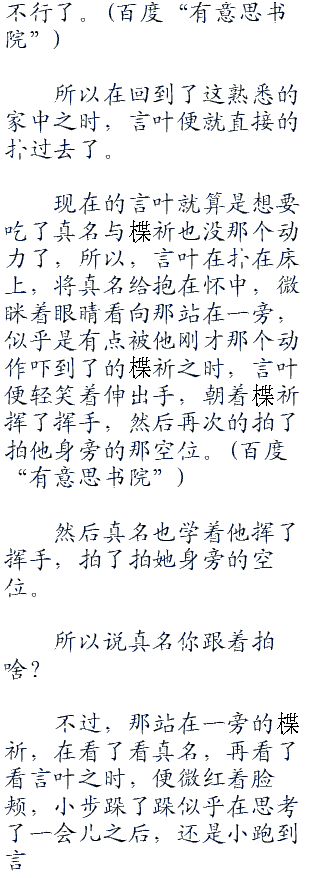 不行了。(百度“有意思书
院”)
所以在回到了这熟悉的
家中之时，言叶便就直接的
扑过去了。
现在的言叶就算是想要
吃了真名与楪祈也没那个动
力了，所以，言叶在扑在床
上，将真名给抱在怀中，微
眯着眼睛看向那站在一旁，
似乎是有点被他刚才那个动
作吓到了的楪祈之时，言叶
便轻笑着伸出手，朝着楪祈
挥了挥手，然后再次的拍了
拍他身旁的那空位。(百度
“有意思书院”)
然后真名也学着他挥了
挥手，拍了拍她身旁的空
位。
所以说真名你跟着拍
啥？
不过，那站在一旁的楪
祈，在看了看真名，再看了
看言叶之时，便微红着脸
颊，小步跺了跺似乎在思考
了一会儿之后，还是小跑到
言